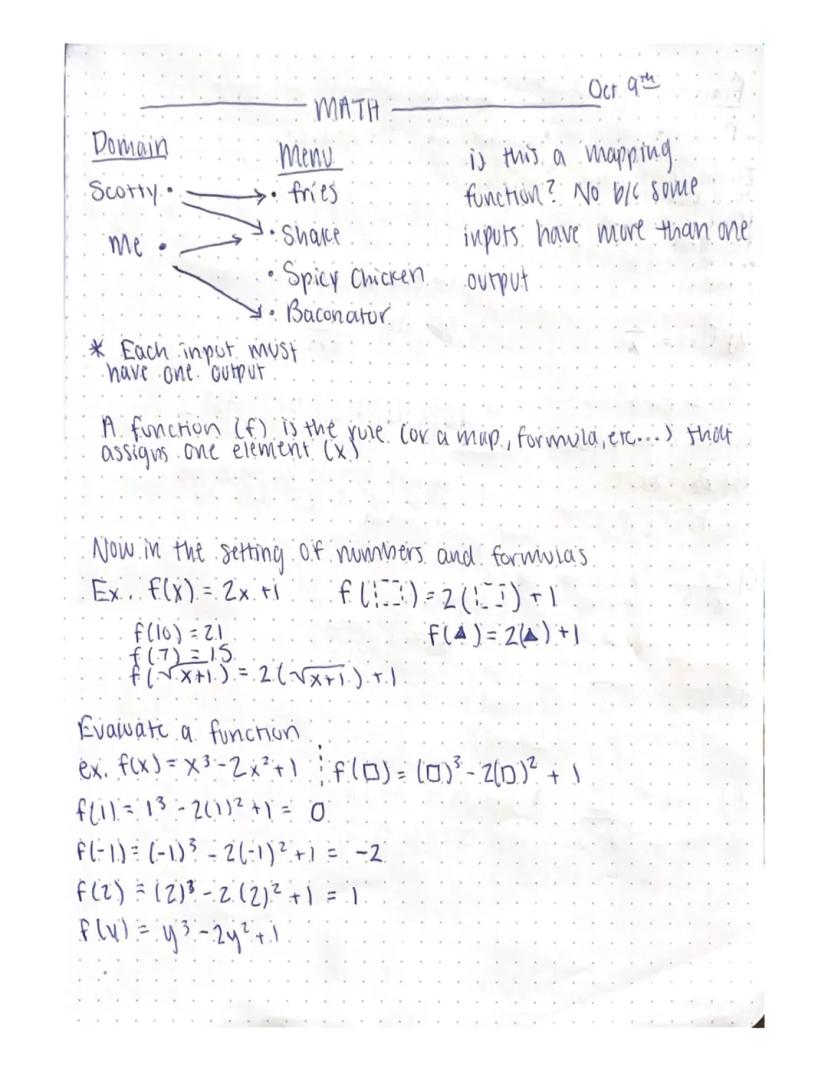 MATH
Oct 9th
Domain
Menu
Scotty • • fries
Me • • Shake
• Spicy Chicken
• Baconator
is this a mapping
function? No b/c some
inputs have more than one
output
* Each input must
have one output
A function (f) is the rule (or a map, formula, etc...) that
assigns one element (x)
Now in the setting of numbers and formulas
Ex. f(x) = 2x + 1 f(⬚) = 2(⬚) + 1
f(10) = 21 f(▲) = 2(▲) + 1
f(7) = 15
f(√x+1) = 2(√x+1) + 1
Evaluate a function
ex. f(x) = x³ - 2x² + 1 f(□) = (□)³ - 2(□)² + 1
f(1) = 1³ - 2(1)² + 1 = 0
f(-1) = (-1)³ - 2(-1)² + 1 = -2
f(2) = (2)³ - 2(2)² + 1 = 1
f(y) = y³ - 2y² + 1